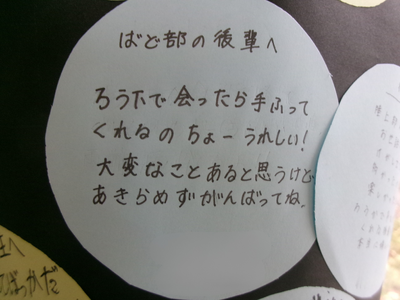 ばど部の後輩へ
ろう下で会ったら手ふって
くれるのちょーうれしい!
大変なことあると思うけど、
あきらめずがんばってね。